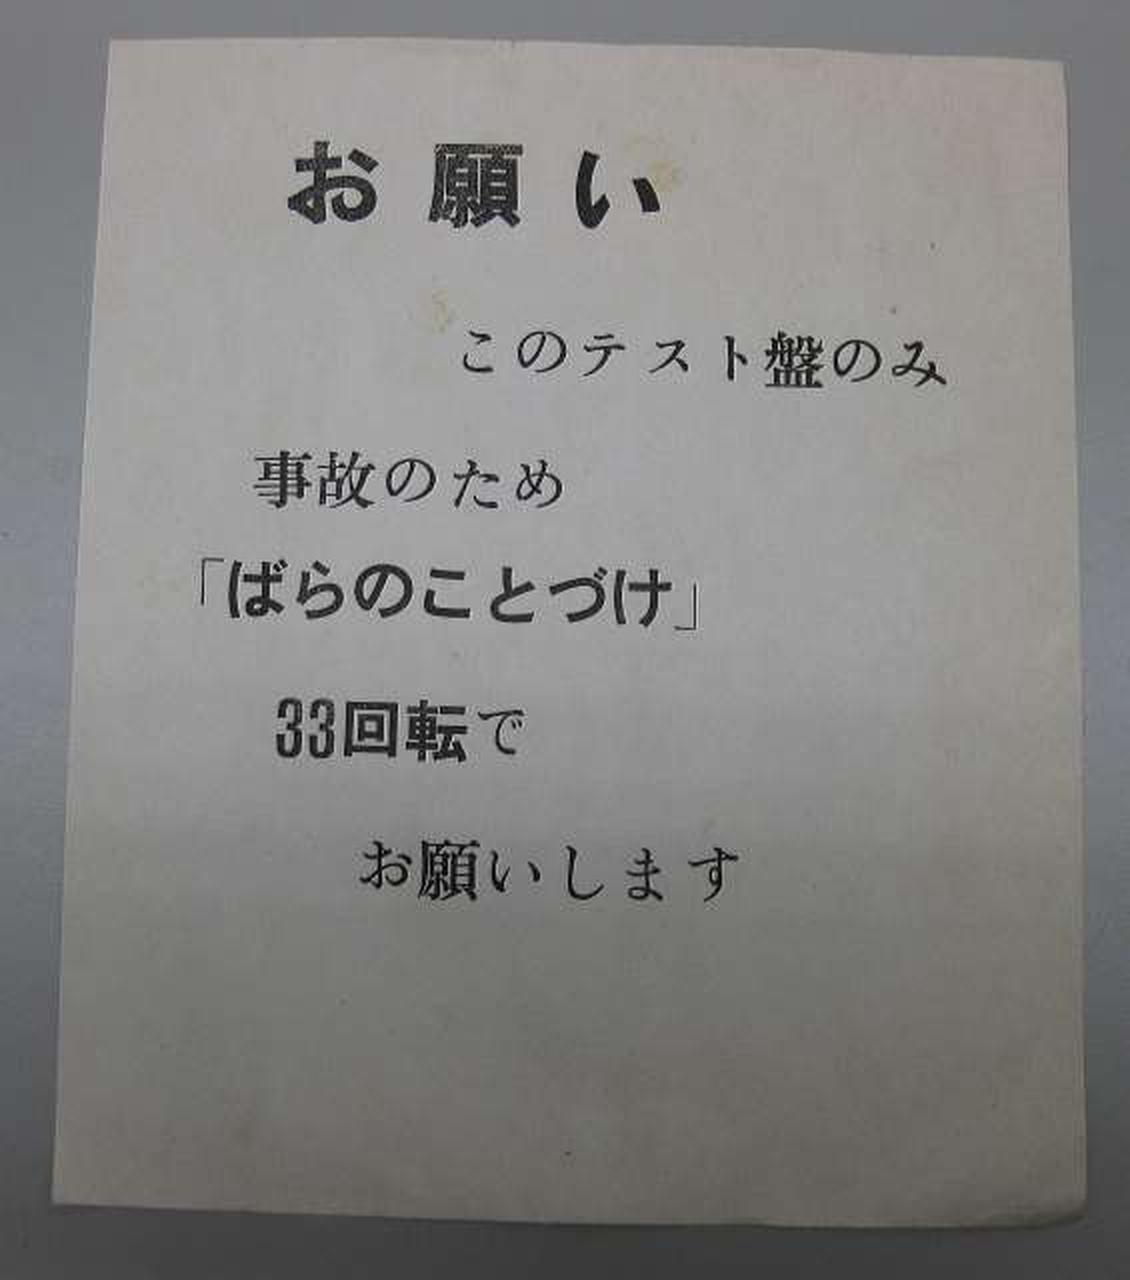 お願い
このテスト盤のみ
事故のため
「ばらのことづけ」
33回転で
お願いします